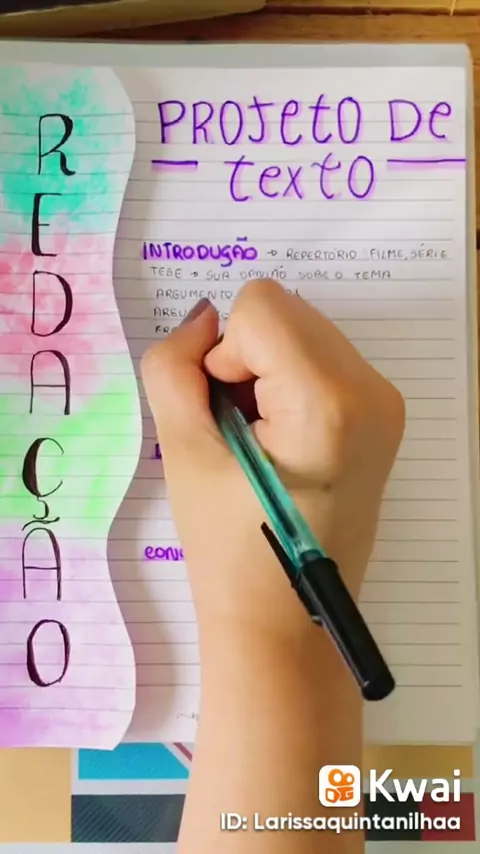 REDAÇÃO
PROJETO DE
TEXTO
INTRODUÇÃO → REPERTÓRIO FILME, SÉRIE
TESE → SUA OPINIÃO SOBE O TEMA
ARGUMENTO
Kwai
ID: Larissaquintanilhaa